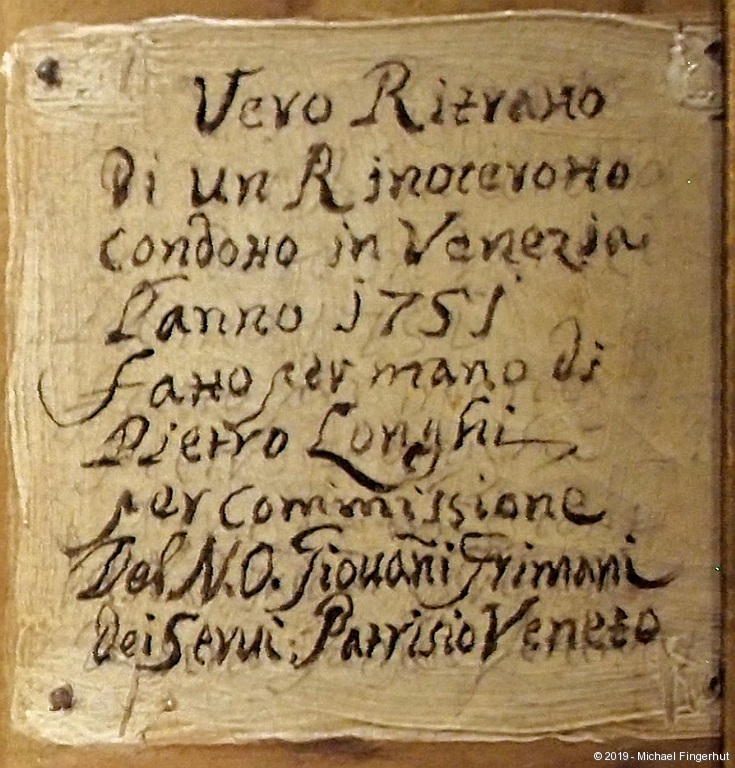 Vero Ritratto
Di un Rinocerotto
condotto in Venezia
L'anno 1751
fatto per mano di
Pietro Longhi
per commissione
Del N. O. Giouañi Grimani
dei Serui Patrisio Veneto
© 2019 - Michael Fingerhut